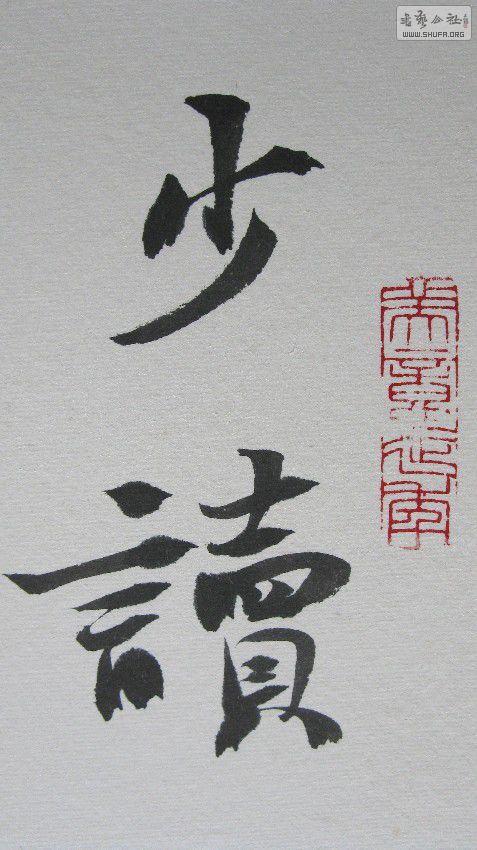 少
讀
書艺公社
WWW.SHUFA.ORG